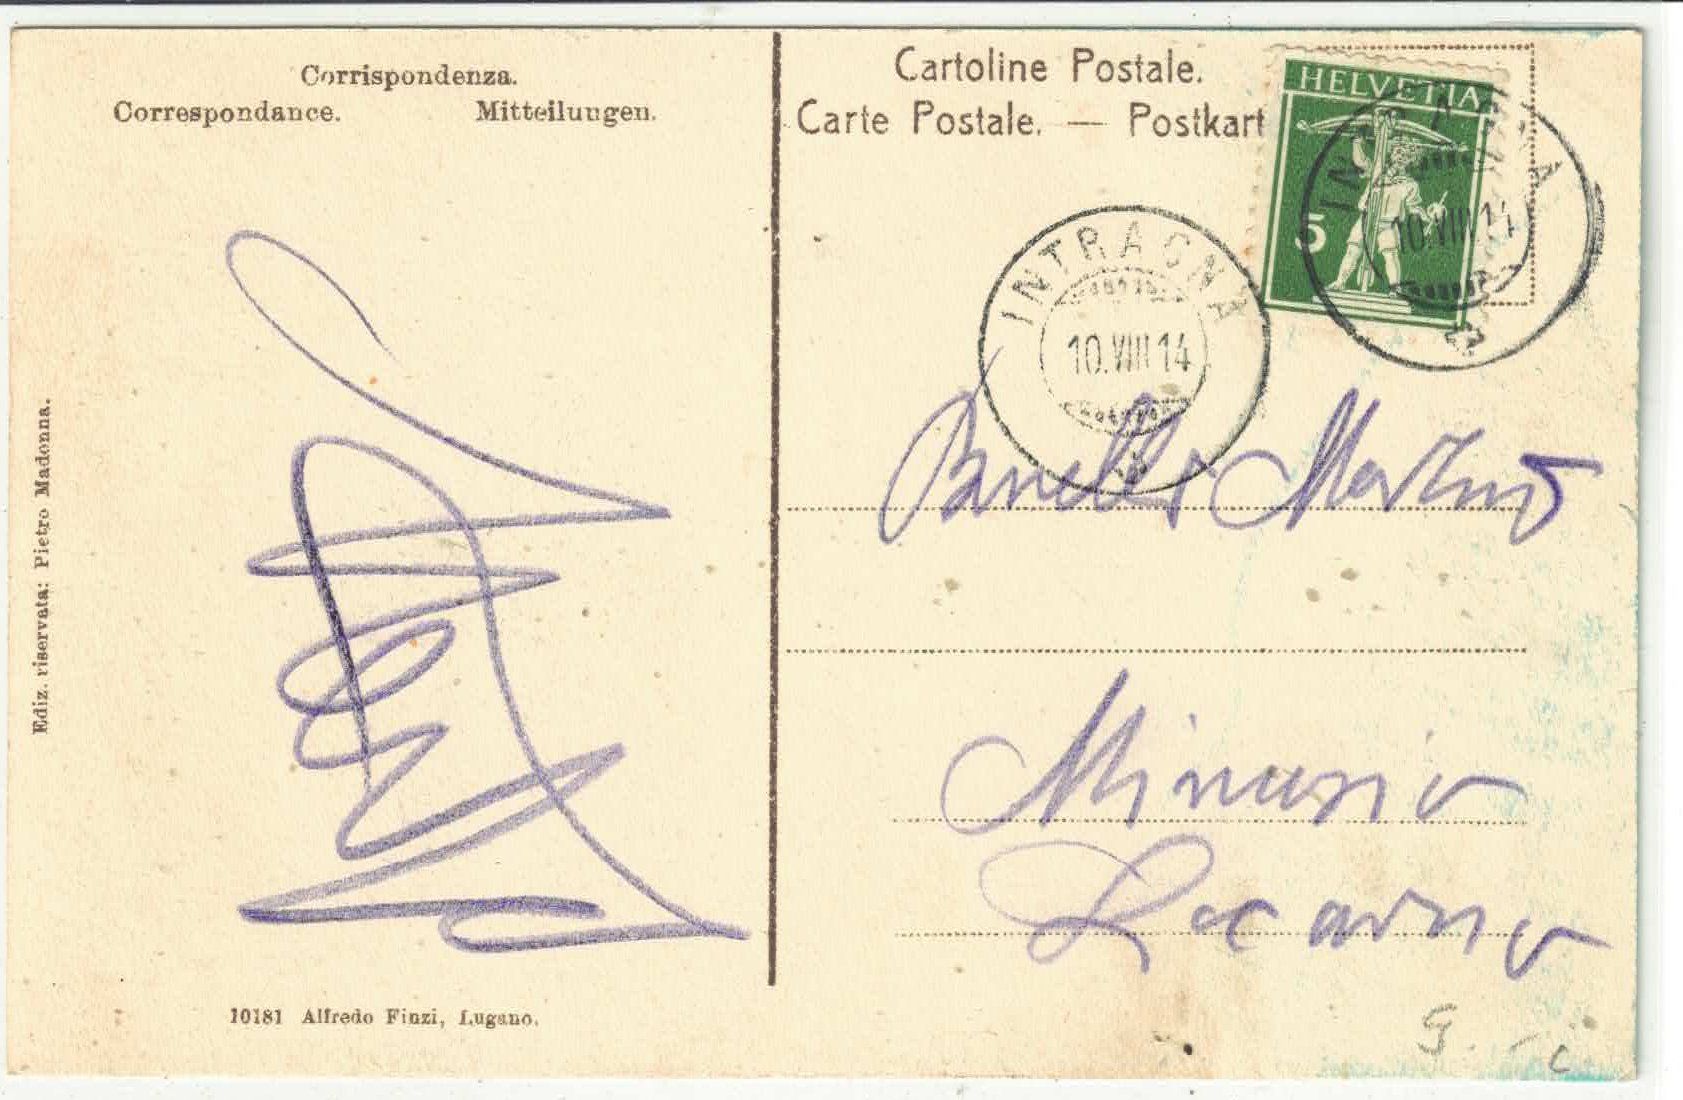 Corrispondenza.
Correspondance. Mitteilungen.
Ediz. riservata: Pietro Madonna.
10181 Alfredo Finzi, Lugano.
Cartoline Postale.
Carte Postale. — Postkart
HELVETIA
5
INTRAGNA
10.VIII 14
INTRAGNA
10.VIII 14
Minusio
Locarno